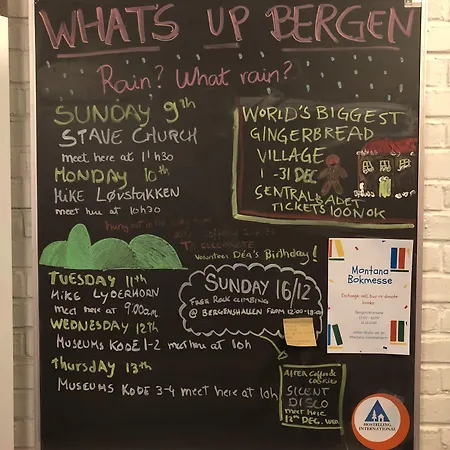 WHAT'S UP BERGEN
Rain? What rain?
SUNDAY 9th
STAVE CHURCH
meet here at 11h30
MONDAY 10th
HIKE LØVSTAKKEN
meet here at 10h30
WORLD'S BIGGEST
GINGERBREAD
VILLAGE
1 - 31 DEC
SENTRALBADET
TICKETS 100NOK
HANG OUT IN THE
TO CELEBRATE
VOLUNTEER DÉA'S BIRTHDAY!
TUESDAY 11th
HIKE LYDERHORN
meet here at 9:00am
WEDNESDAY 12th
MUSEUMS KODE 1-2 meet here at 10h
THURSDAY 13th
MUSEUMS KODE 3-4 meet here at 10h
SUNDAY 16/12
FREE ROCK CLIMBING
@ BERGENSHALLEN FROM 12:00-18:00
Montana
Bokmesse
Exchange, sell, buy or donate
books
AFTER COFFEE &
SILENT
DISCO
meet here
12th DEC. WED
HOSTELLING
INTERNATIONAL